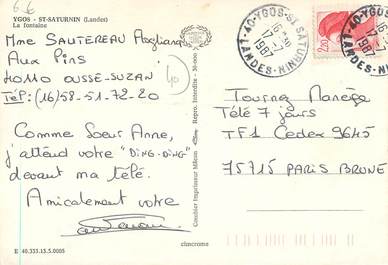 YGOS - ST-SATURNIN (Landes)
La fontaine
Mme SAUTEREAU
Aux Pins
40110 OUSSE-SUZAN
Tél: (16) 58-51-72-20
Comme Soeur Anne,
j'attend votre "DING-DING"
devant ma télé.
Amicalement votre
E 40.333.13.5.0005
Combier Imprimeur Mâcon
Repro. Interdite - 30-000
cimcrome
40-YGOS-ST SATURNIN
17-7
1987
LANDES
40-YGOS-ST SATURNIN
17-7
1987
LANDES
2,20
Télé 7 jours
TF1 Cedex 9645
75715 PARIS BRUNE